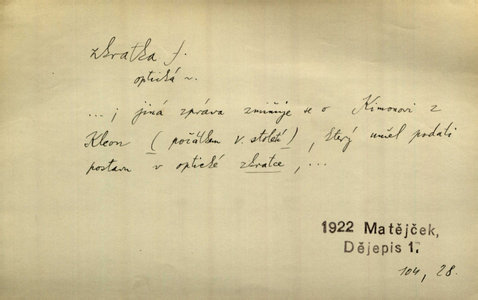 zkratka f.
optická ~.
...; jiná zpráva zmiňuje se o Kimonovi z
Kleon (počátkem V. století), který uměl podati
postavu v optické zkratce, ...
1922 Matějček,
Dějepis 1.
104, 28.